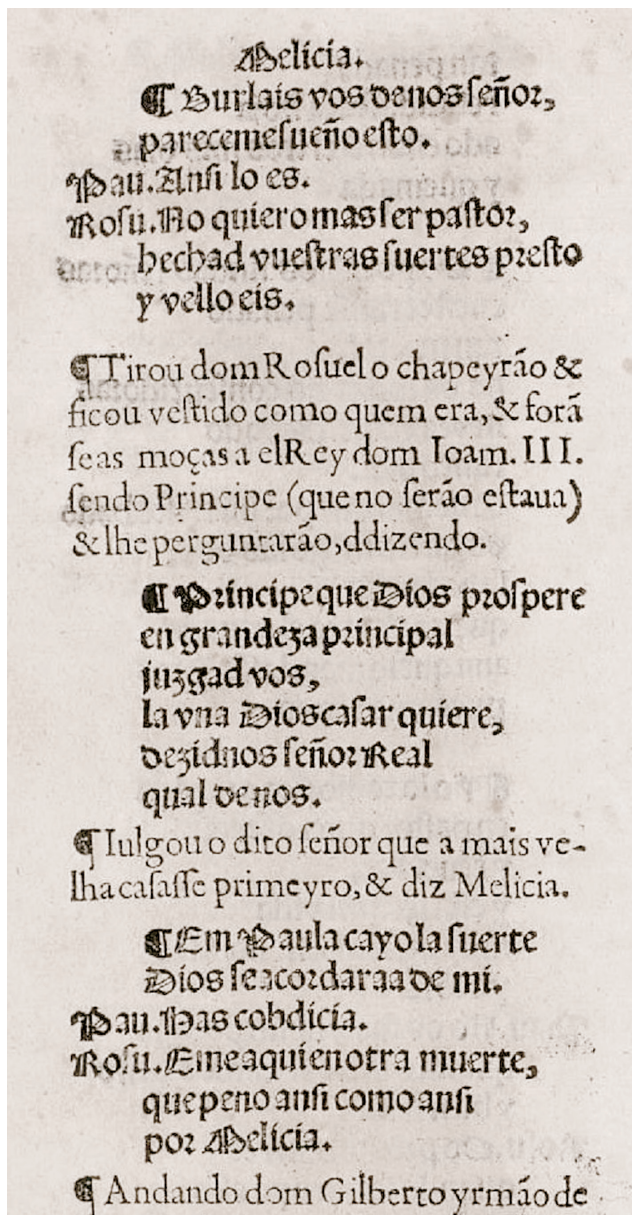 Melicia.
¶ Burlais vos de nos señor,
pareceme sueño esto.
Pau. Ansi lo es.
Rosu. No quiero mas ser pastor,
hechad vuestras suertes presto
y vello eis.
¶ Tirou dom Rosuel o chapeyrão &
ficou vestido como quem era, & forã
se as moças a elRey dom Ioam. III.
sendo Principe (que no serão estaua)
& lhe perguntarão, ddizendo.
¶ Principe que Dios prospere
en grandeza principal
juzgad vos,
la vna Dios casar quiere,
dezidnos señor Real
qual de nos.
¶ Iulgou o dito señor que a mais ve-
lha casasse primeyro, & diz Melicia.
¶ Em Paula cayo la suerte
Dios se acordaraa de mi.
Pau. Has cobdicia.
Rosu. Eme aqui en otra muerte,
que peno ansi como ansi
por Melicia.
¶ Andando dom Gilberto yrmão de